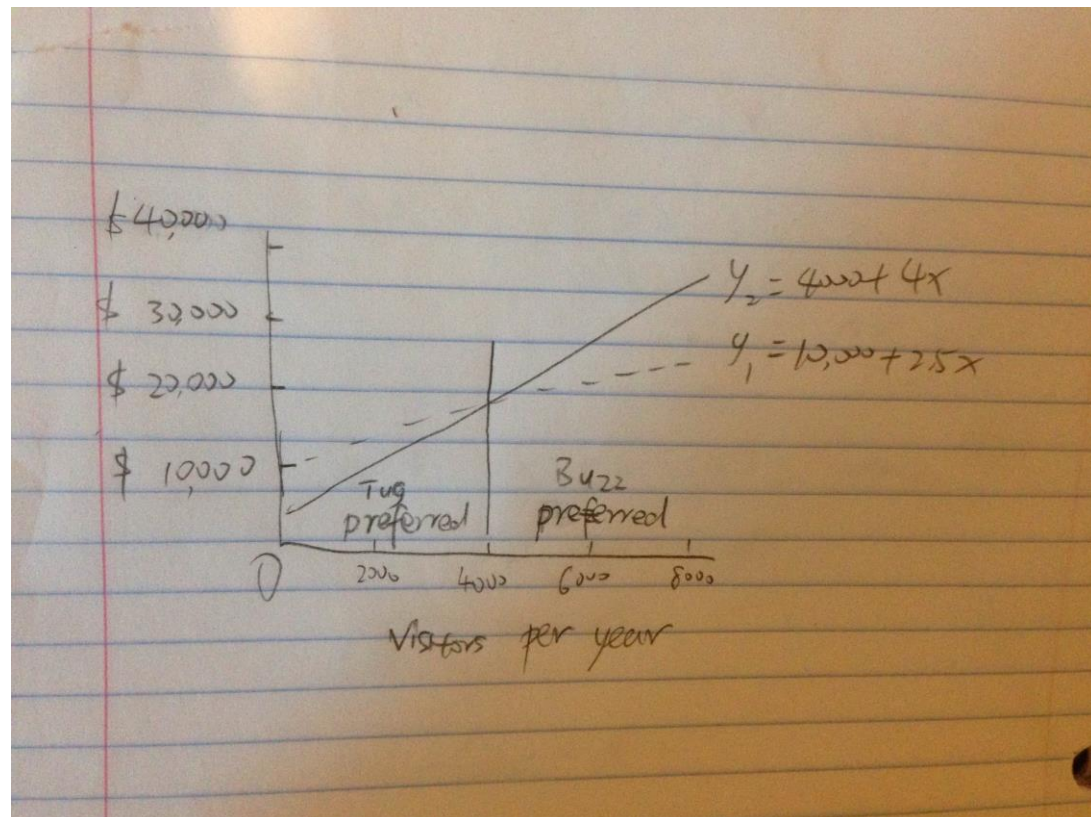 $ 40,000
$ 30,000
$ 20,000
$ 10,000
y₂ = 4000 + 4x
y₁ = 10,000 + 2.5x
Tug
preferred
Buzz
preferred
0 2000 4000 6000 8000
Visitors per year